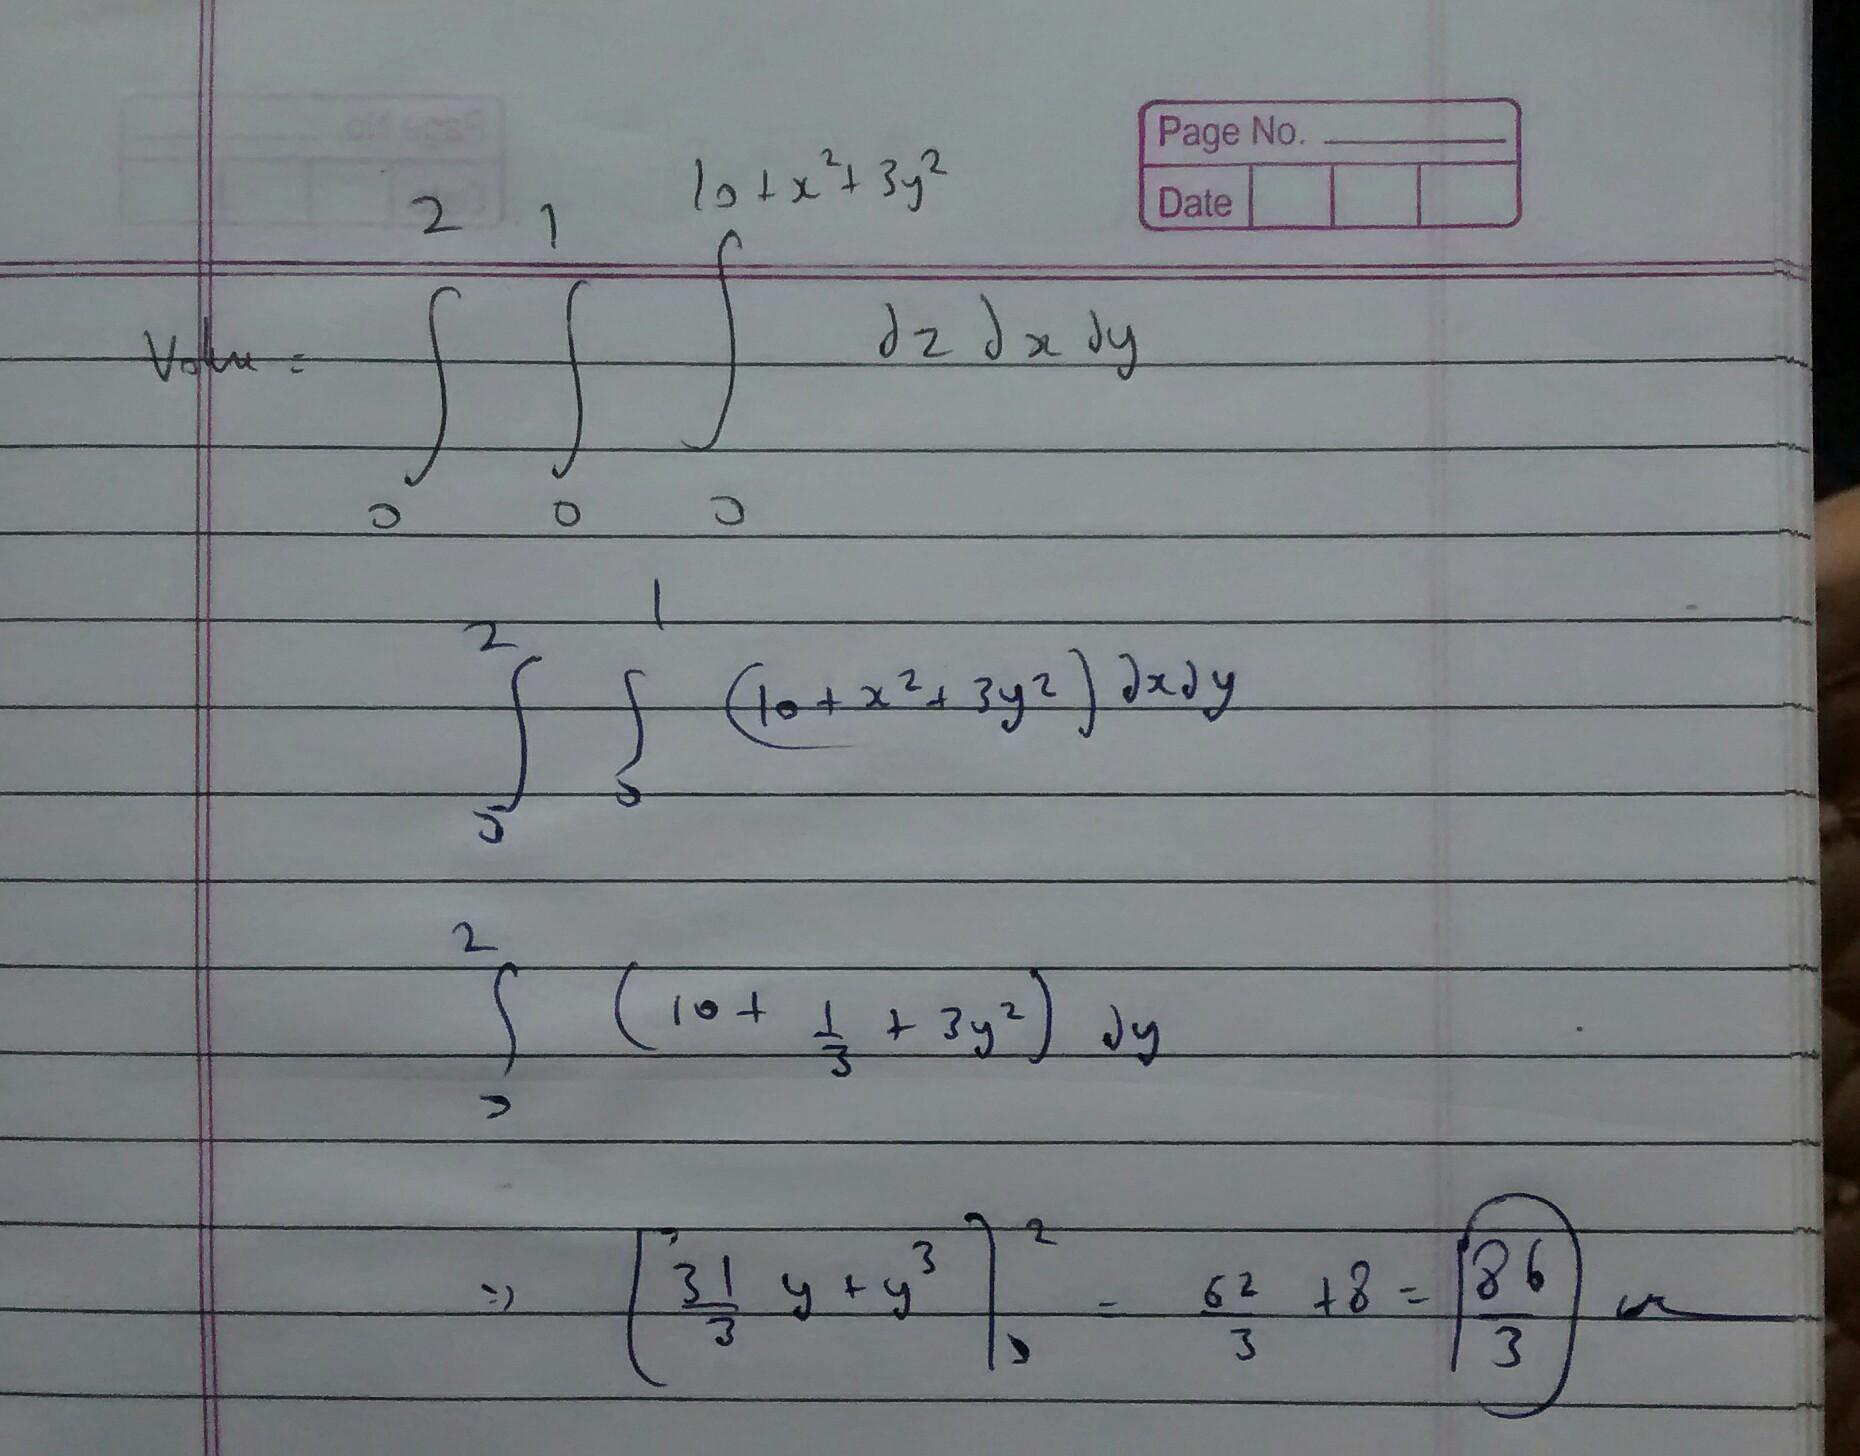 Page No.
Date
Volu = ∫₀² ∫₀¹ ∫₀^(10+x²+3y²) dz dx dy
∫₀² ∫₀¹ (10+x²+3y²) dx dy
∫₀² (10 + 1/3 + 3y²) dy
=> [31/3 y + y³]₀² = 62/3 + 8 = 86/3